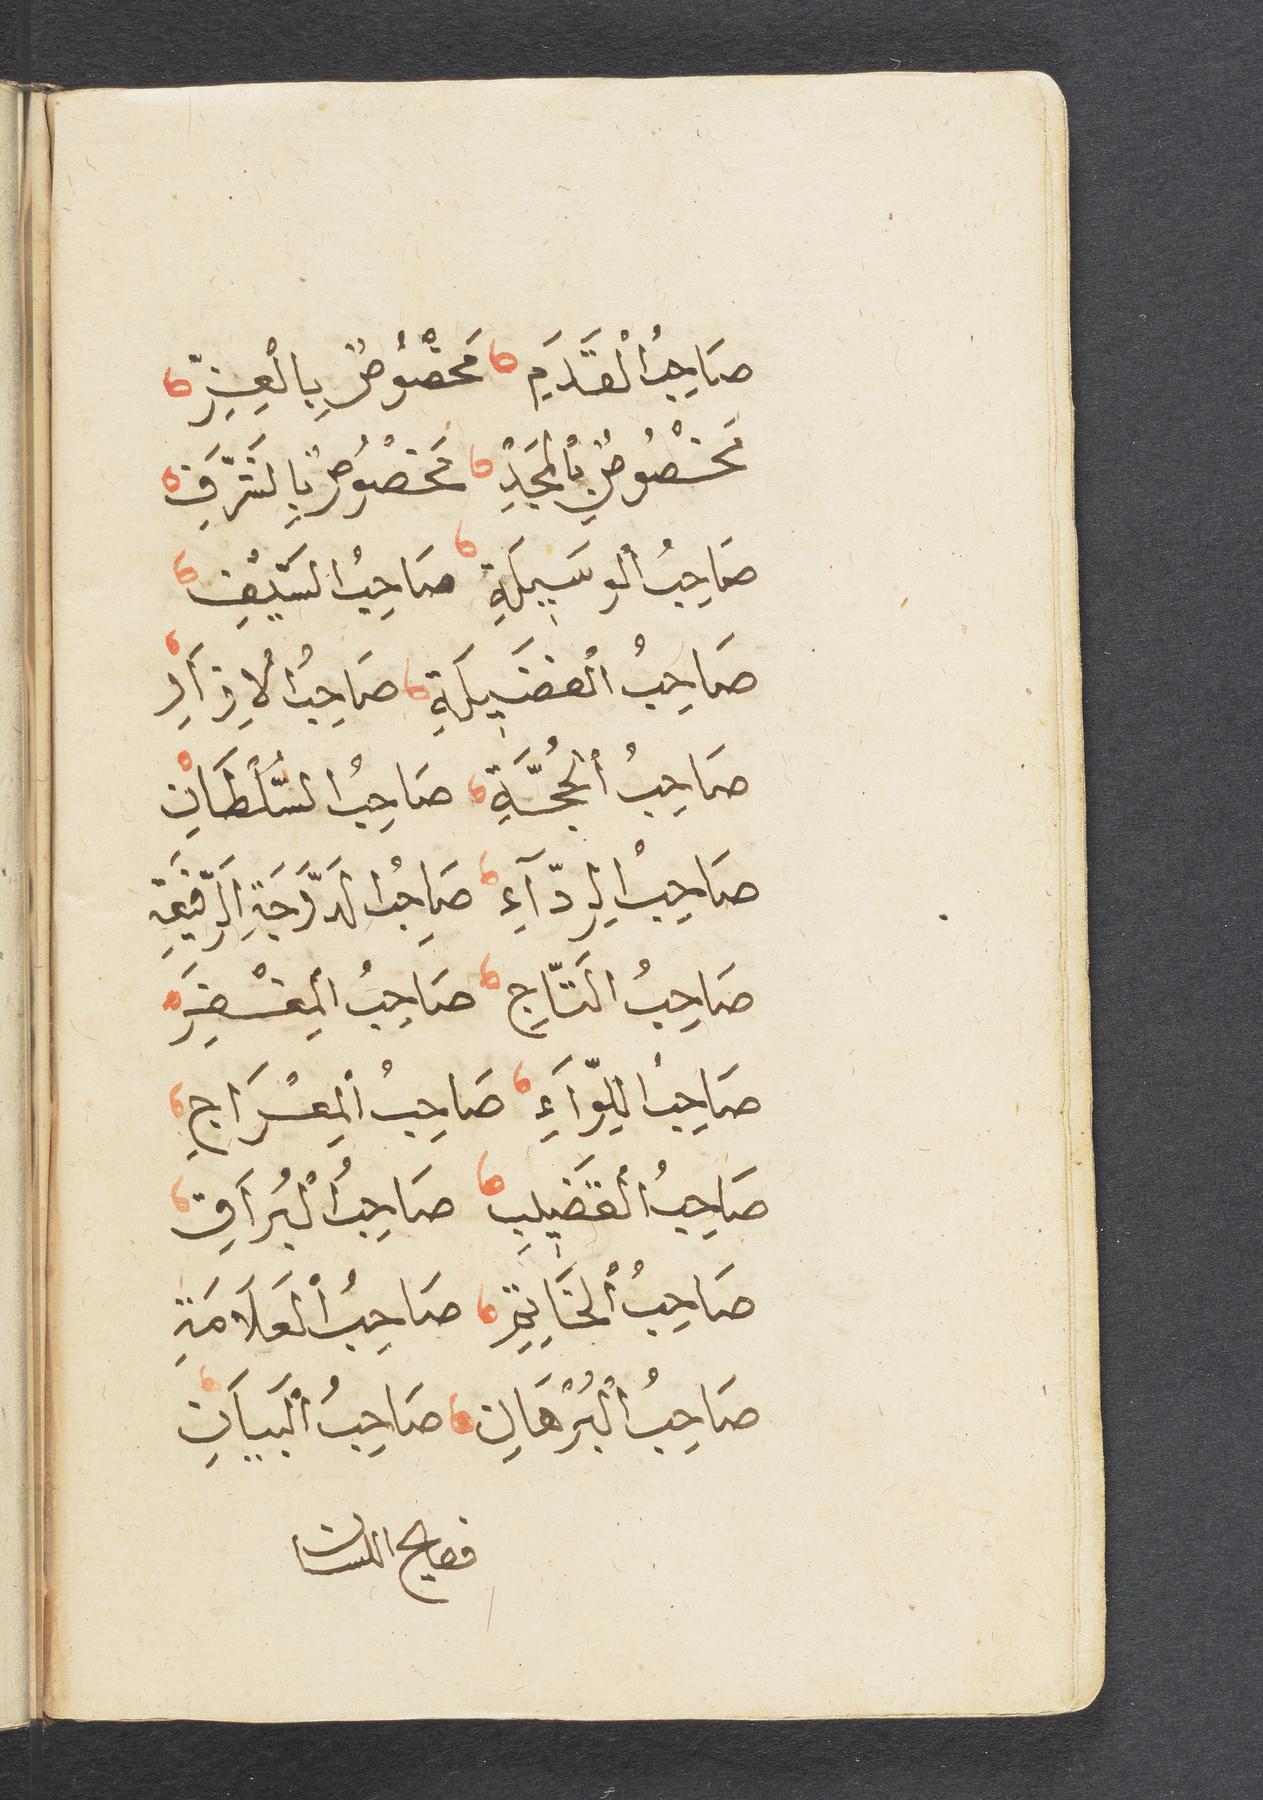 صَاحِبُ الْقَدَمِ مَخْصُوصٌ بِالْعِزِّ
مَخْصُوصٌ بِالْمَجْدِ مَخْصُوصٌ بِالشَّرَفِ
صَاحِبُ الْوَسِيلَةِ صَاحِبُ السَّيْفِ
صَاحِبُ الْفَضِيلَةِ صَاحِبُ الْاِزَارِ
صَاحِبُ الْحُجَّةِ صَاحِبُ السُّلْطَانِ
صَاحِبُ الرِّدَآءِ صَاحِبُ الدَّرَجَةِ الرَّفِيعَةِ
صَاحِبُ التَّاجِ صَاحِبُ الْمِغْفَرِ
صَاحِبُ اللِّوَآءِ صَاحِبُ الْمِعْرَاجِ
صَاحِبُ الْقَضِيبِ صَاحِبُ الْبُرَاقِ
صَاحِبُ الْخَاتِمِ صَاحِبُ الْعَلَامَةِ
صَاحِبُ الْبُرْهَانِ صَاحِبُ الْبَيَانِ
فصيح اللسان